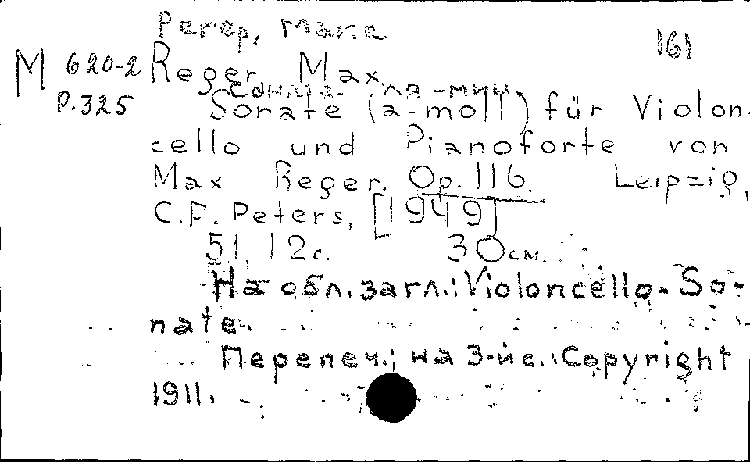 Регер, Макс
161
M 620-2 Reger, Max
Соната ля-мин.
Р.325 Sonate (a-moll) für Violon-
cello und Pianoforte von
Max Reger. Op. 116. Leipzig,
C.F. Peters, [1949]
51, 12с. 30см.
На обл. загл.: Violoncello-So-
nate.
Перепеч.; на 3-й с.: Copyright
1911.